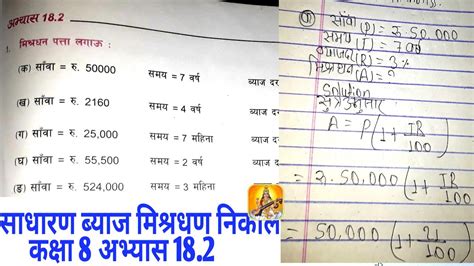 अभ्यास 18.2
1. मिश्रधन पत्ता लगाऊ :
(क) साँवा = रु. 50000 समय = 7 वर्ष ब्याज दर
(ख) साँवा = रु. 2160 समय = 4 वर्ष ब्याज दर
(ग) साँवा = रु. 25,000 समय = 7 महिना ब्याज दर
(घ) साँवा = रु. 55,500 समय = 2 वर्ष ब्याज दर
(ङ) साँवा = रु. 524,000 समय = 3 महिना
साधारण ब्याज मिश्रधण निकाल
कक्षा 8 अभ्यास 18.2
साँवा (P) = रु. 50,000
समय (T) = 7 वर्ष
ब्याजदर (R) = 3%
मिश्रधन (A) = ?
Solution
सुत्र अनुसार
A = P(1 + TR/100)
= रु. 50,000(1 + /100)
= 50,000(1 + 21/100)